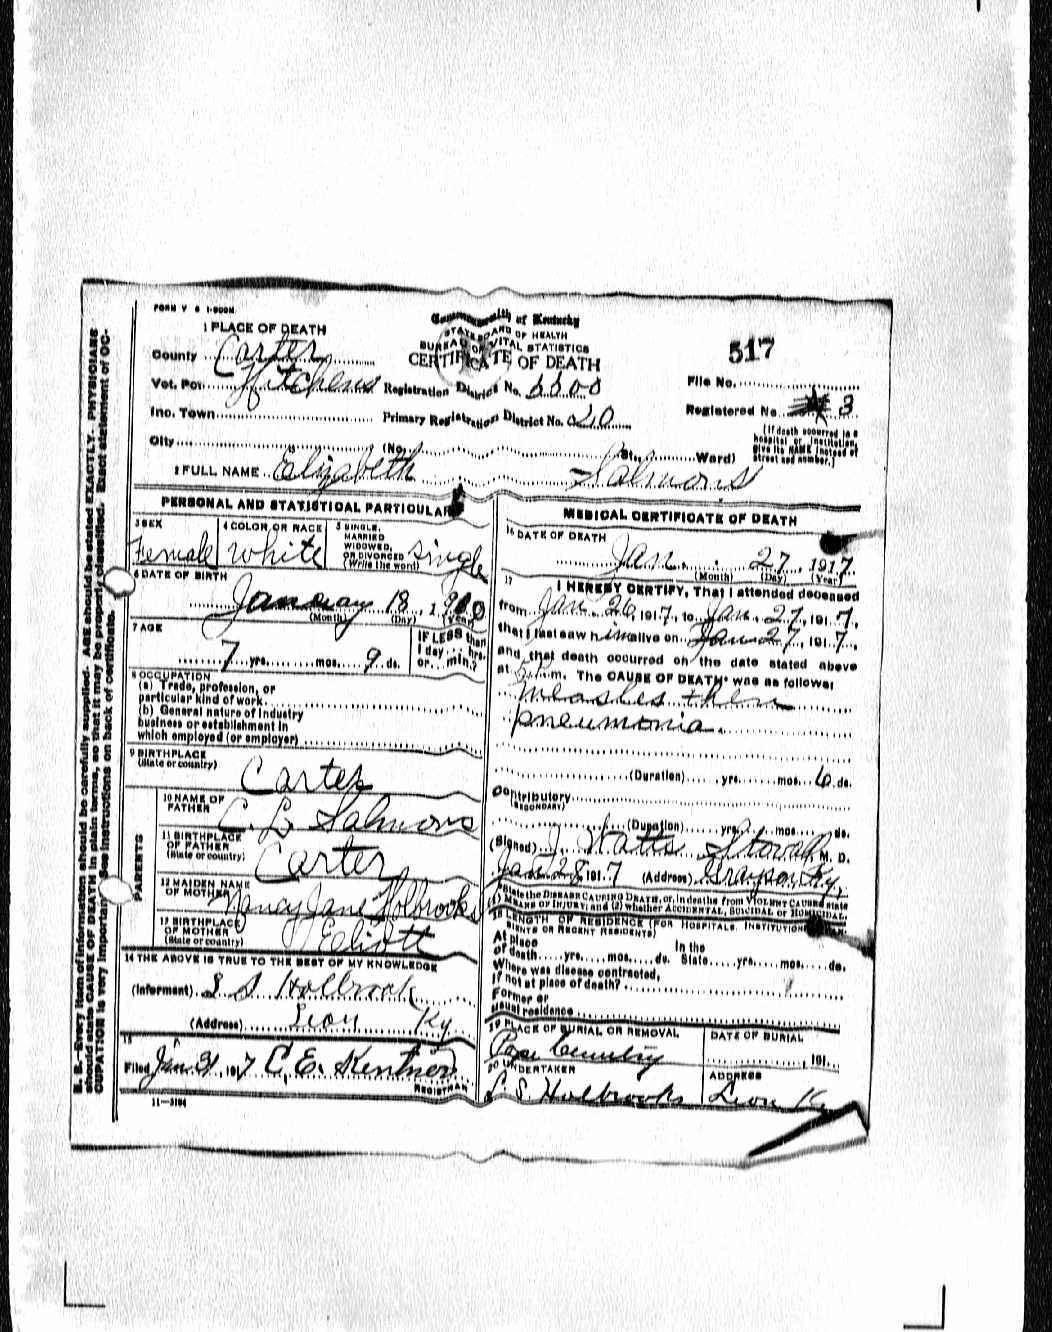 FORM V S 1-500M
Commonwealth of Kentucky
STATE BOARD OF HEALTH
BUREAU OF VITAL STATISTICS
CERTIFICATE OF DEATH
517
1 PLACE OF DEATH
County Carter
Vot. Pct. Hitchens Registration District No.
File No.
Inc. Town Primary Registration District No.
Registered No. 3
City (No. St., Ward)
(If death occurred in a hospital or institution, give its NAME instead of street and number.)
2 FULL NAME Elizabeth Salmons
PERSONAL AND STATISTICAL PARTICULARS
3 SEX Female
4 COLOR OR RACE white
5 SINGLE, MARRIED WIDOWED, OR DIVORCED (Write the word) single
6 DATE OF BIRTH
January 18, 1910
(Month) (Day) (Year)
7 AGE
7 yrs. mos. 9 ds.
IF LESS than 1 day hrs. or min.?
8 OCCUPATION
(a) Trade, profession, or
particular kind of work
(b) General nature of industry
business or establishment in
which employed (or employer)
9 BIRTHPLACE
(State or country) Carter
PARENTS
10 NAME OF FATHER C. L Salmons
11 BIRTHPLACE OF FATHER (State or country) Carter
12 MAIDEN NAME OF MOTHER Nancy Jane Holbrooks
13 BIRTHPLACE OF MOTHER (State or country) Elliott
14 THE ABOVE IS TRUE TO THE BEST OF MY KNOWLEDGE
(Informant) L S Holbrook
(Address) Leon Ky
15
Filed Jan 31 1917 C. E. Kentner
REGISTRAR
11—3184
MEDICAL CERTIFICATE OF DEATH
16 DATE OF DEATH
Jan. 27, 1917.
(Month) (Day) (Year)
17 I HEREBY CERTIFY, That I attended deceased
from Jan 26, 1917, to Jan. 27, 1917,
that I last saw him alive on Jan 27, 1917,
and that death occurred on the date stated above
at m. The CAUSE OF DEATH* was as follows:
measles then
pneumonia.
(Duration) yrs. mos. 6 ds.
Contributory
(SECONDARY)
(Duration) yrs. mos. ds.
(Signed) J Watts Stovall, M. D.
Jan 28 1917 (Address) Grayson Ky.
*State the DISEASE CAUSING DEATH, or, in deaths from VIOLENT CAUSES state
(1) MEANS OF INJURY; and (2) whether ACCIDENTAL, SUICIDAL or HOMICIDAL.
18 LENGTH OF RESIDENCE (FOR HOSPITALS, INSTITUTIONS, TRANSIENTS OR RECENT RESIDENTS)
At place of death yrs. mos. ds. In the State yrs. mos. ds.
Where was disease contracted,
If not at place of death?
Former or
usual residence
19 PLACE OF BURIAL OR REMOVAL
DATE OF BURIAL
Pope Cemetery
191
20 UNDERTAKER
ADDRESS
L. S. Holbrooks
Leon Ky
N. B.—Every item of information should be carefully supplied. AGE should be stated EXACTLY. PHYSICIANS
should state CAUSE OF DEATH in plain terms, so that it may be properly classified. Exact statement of OC-
CUPATION is very important. See instructions on back of certificate.